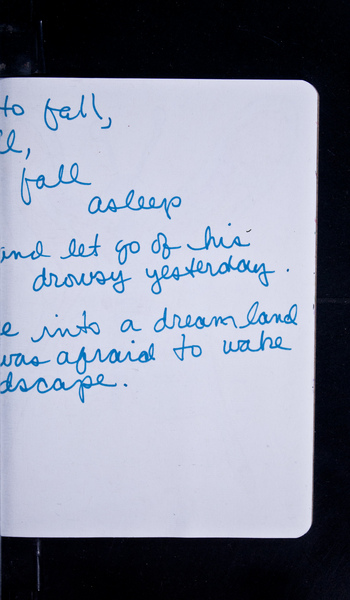 to fall,
ll,
fall
asleep
and let go of his
drowsy yesterday.
e into a dreamland
was afraid to wake
dscape.